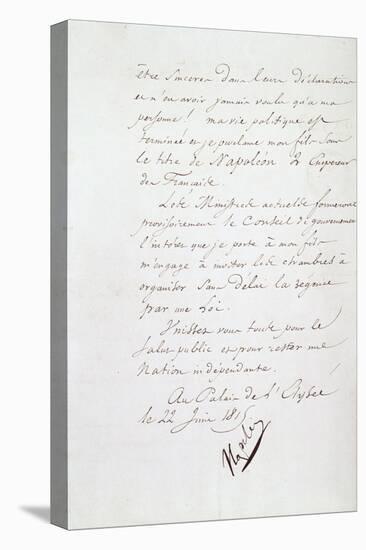 être sincères dans leurs déclarations
et n'en avoir jamais voulu qu'à ma
personne! ma vie politique est
terminée et je proclame mon fils sous
le titre de Napoléon 2 Empereur
des Français.
Les Ministres actuels formeront
provisoirement le Conseil de gouvernement
l'intérêt que je porte à mon fils
m'engage à inviter les chambres à
organiser sans délai la régence
par une loi.
Unissez vous tous pour le
salut public et pour rester une
Nation indépendante.
Au Palais de l'Elysée
le 22 Juin 1815